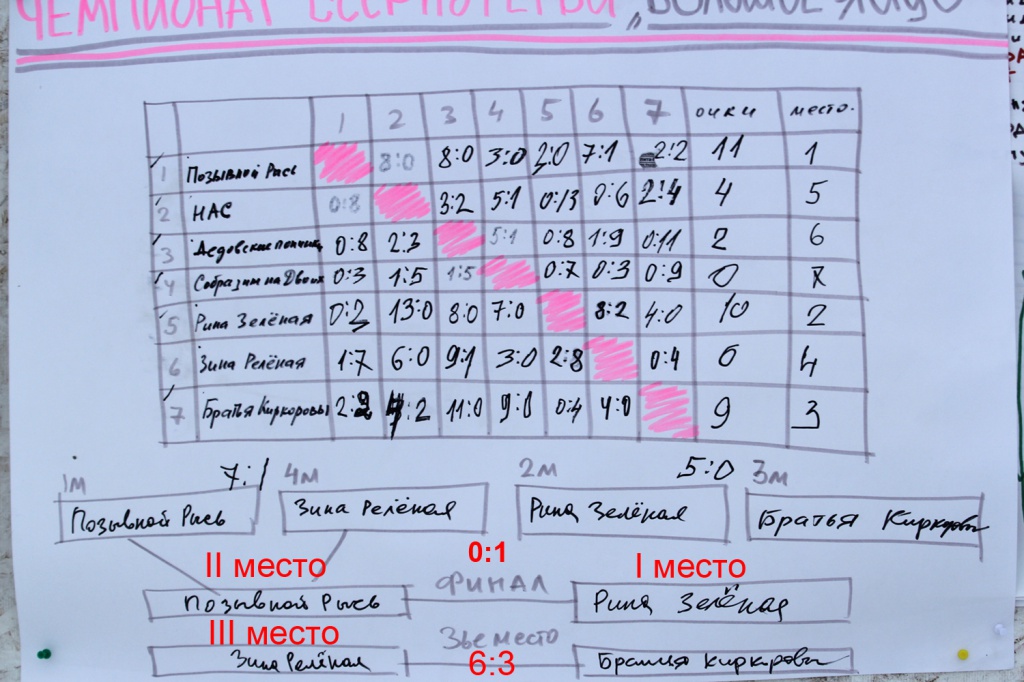 ЧЕМПИОНАТ
1 2 3 4 5 6 7 очки место.
1 Позывной Рысь 8:0 8:0 3:0 2:0 7:1 2:2 11 1
2 НАС 0:8 3:2 5:1 0:13 0:6 2:4 4 5
3 Дедовские 0:8 2:3 5:1 0:8 1:9 0:11 2 6
4 Собразим на Двоих 0:3 1:5 1:5 0:7 0:3 0:9 0 7
5 Рина Зелёная 0:2 13:0 8:0 7:0 8:2 4:0 10 2
6 Зина Релёная 1:7 6:0 9:1 3:0 2:8 0:4 6 4
7 Братья Киркоровы 2:2 4:2 11:0 9:0 0:4 4:0 9 3
1м 7:1 4м 2м 5:0 3м
Позывной Рысь Зина Релёная Рина Зелёная Братья Киркоровы
II место 0:1 I место
Позывной Рысь ФИНАЛ Рина Зелёная
III место 3ье место
Зина Релёная 6:3 Братья Киркоровы